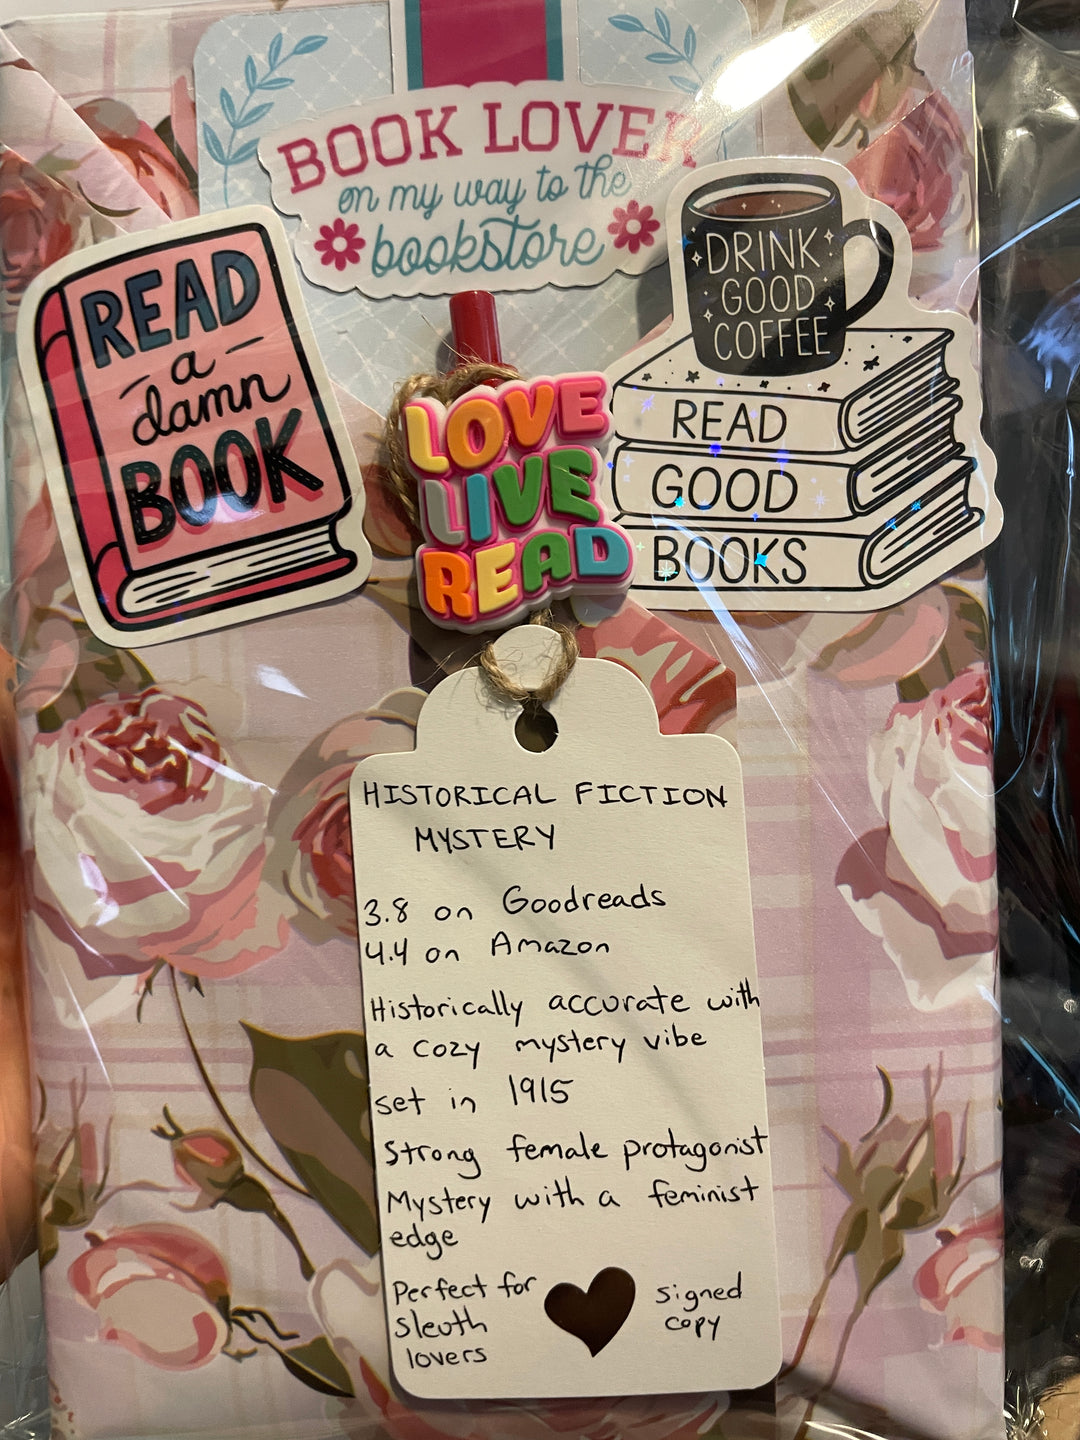 BOOK LOVER
on my way to the
bookstore
READ
a
damn
BOOK
DRINK
GOOD
COFFEE
READ
GOOD
BOOKS
LOVE
LIVE
READ
HISTORICAL FICTION
MYSTERY
3.8 on Goodreads
4.4 on Amazon
Historically accurate with
a cozy mystery vibe
set in 1915
Strong female protagonist
Mystery with a feminist
edge
Perfect for
sleuth
lovers
signed
copy